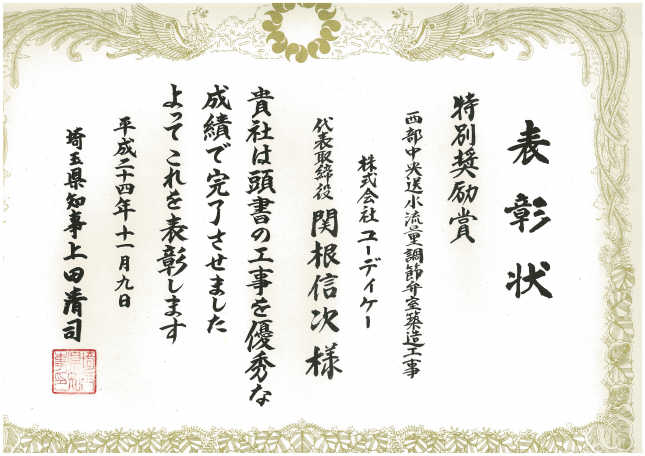 表彰状
特別奨励賞
西部中央送水流量調節弁室築造工事
株式会社 ユーディケー
代表取締役 関根信次 様
貴社は頭書の工事を優秀な
成績で完了させました
よってこれを表彰します
平成二十四年十一月九日
埼玉県知事 上田清司